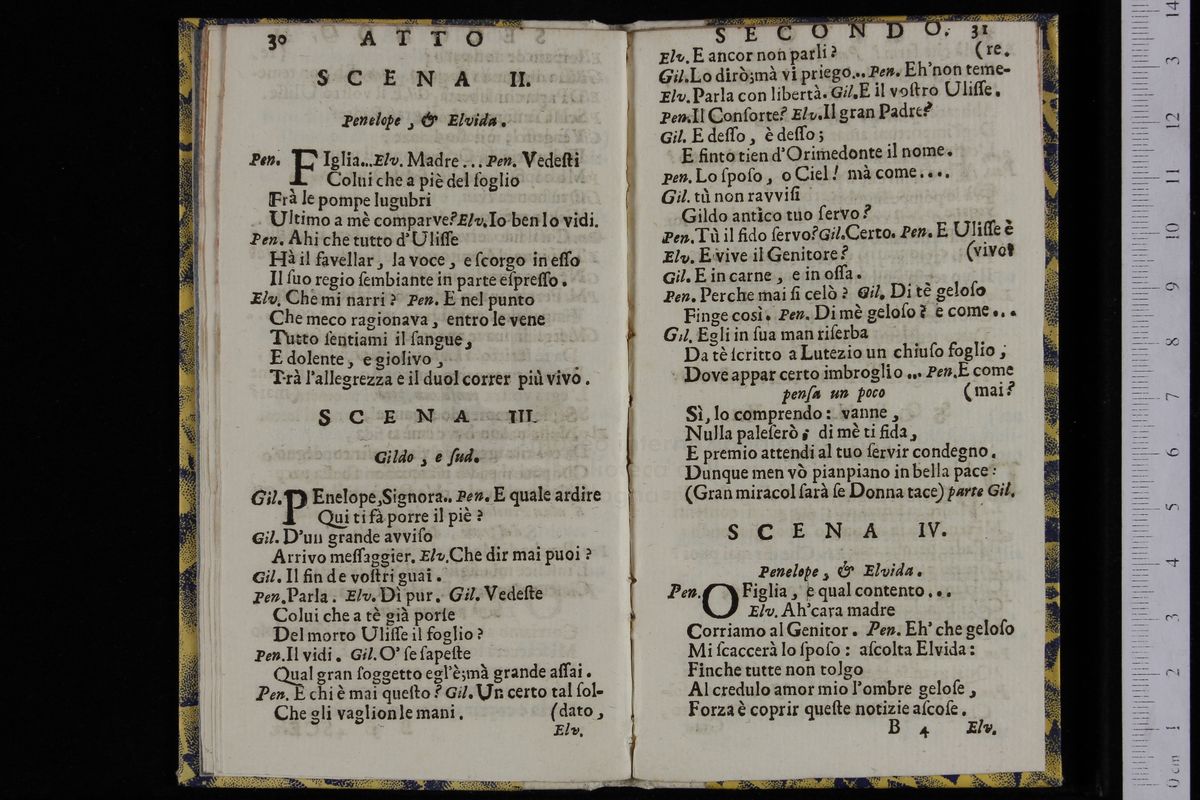 30 ATTO
SCENA II.
Penelope, & Elvida.
Pen. FIglia...Elv. Madre... Pen. Vedeſti
Colui che a piè del ſoglio
Frà le pompe lugubri
Ultimo a mè comparve?Elv.Io ben lo vidi.
Pen. Ahi che tutto d'Uliſſe
Hà il favellar, la voce, e ſcorgo in eſſo
Il ſuo regio ſembiante in parte eſpreſſo.
Elv. Chè mi narri? Pen. E nel punto
Che meco ragionava, entro le vene
Tutto ſentiami il ſangue,
E dolente, e giolivo,
Trà l'allegrezza e il duol correr più vivo.
SCENA III.
Gildo, e ſud.
Gil. PEnelope,Signora.. Pen. E quale ardire
Qui ti fà porre il piè?
Gil. D'un grande avviſo
Arrivo meſſaggier. Elv.Che dir mai puoi?
Gil. Il fin de voſtri guai.
Pen.Parla. Elv. Di pur. Gil. Vedeſte
Colui che a tè già porſe
Del morto Uliſſe il foglio?
Pen.Il vidi. Gil.O' ſe ſapeſte
Qual gran ſoggetto egl'è;mà grande aſſai.
Pen. E chi è mai queſto? Gil. Un certo tal ſol-
Che gli vaglion le mani. (dato,
Elv.
SECONDO. 31
Elv. E ancor non parli? (re.
Gil.Lo dirò;mà vi priego... Pen. Eh'non teme-
Elv.Parla con libertà. Gil.E il voſtro Uliſſe.
Pen.Il Conſorte? Elv.Il gran Padre?
Gil. E deſſo, è deſſo;
E finto tien d'Orimedonte il nome.
Pen. Lo ſpoſo, o Ciel! mà come....
Gil. tù non ravviſi
Gildo antico tuo ſervo?
Pen.Tù il fido ſervo?Gil.Certo. Pen. E Uliſſe è
Elv. E vive il Genitore? (vivo?
Gil. E in carne, e in oſſa.
Pen. Perche mai ſi celò? Gil. Di tè geloſo
Finge così. Pen. Di mè geloſo? e come...
Gil. Egli in ſua man riſerba
Da tè ſcritto a Lutezio un chiuſo foglio,
Dove appar certo imbroglio... Pen.E come
penſa un poco (mai?
Sì, lo comprendo: vanne,
Nulla paleſerò; di mè ti fida,
E premio attendi al tuo ſervir condegno.
Dunque men vò pianpiano in bella pace:
(Gran miracol ſarà ſe Donna tace) parte Gil.
SCENA IV.
Penelope, & Elvida.
Pen. O Figlia, e qual contento...
Elv. Ah'cara madre
Corriamo al Genitor. Pen. Eh' che geloſo
Mi ſcaccerà lo ſpoſo: aſcolta Elvida:
Finche tutte non tolgo
Al credulo amor mio l'ombre geloſe,
Forza è coprir queſte notizie aſcoſe.
B 4 Elv.